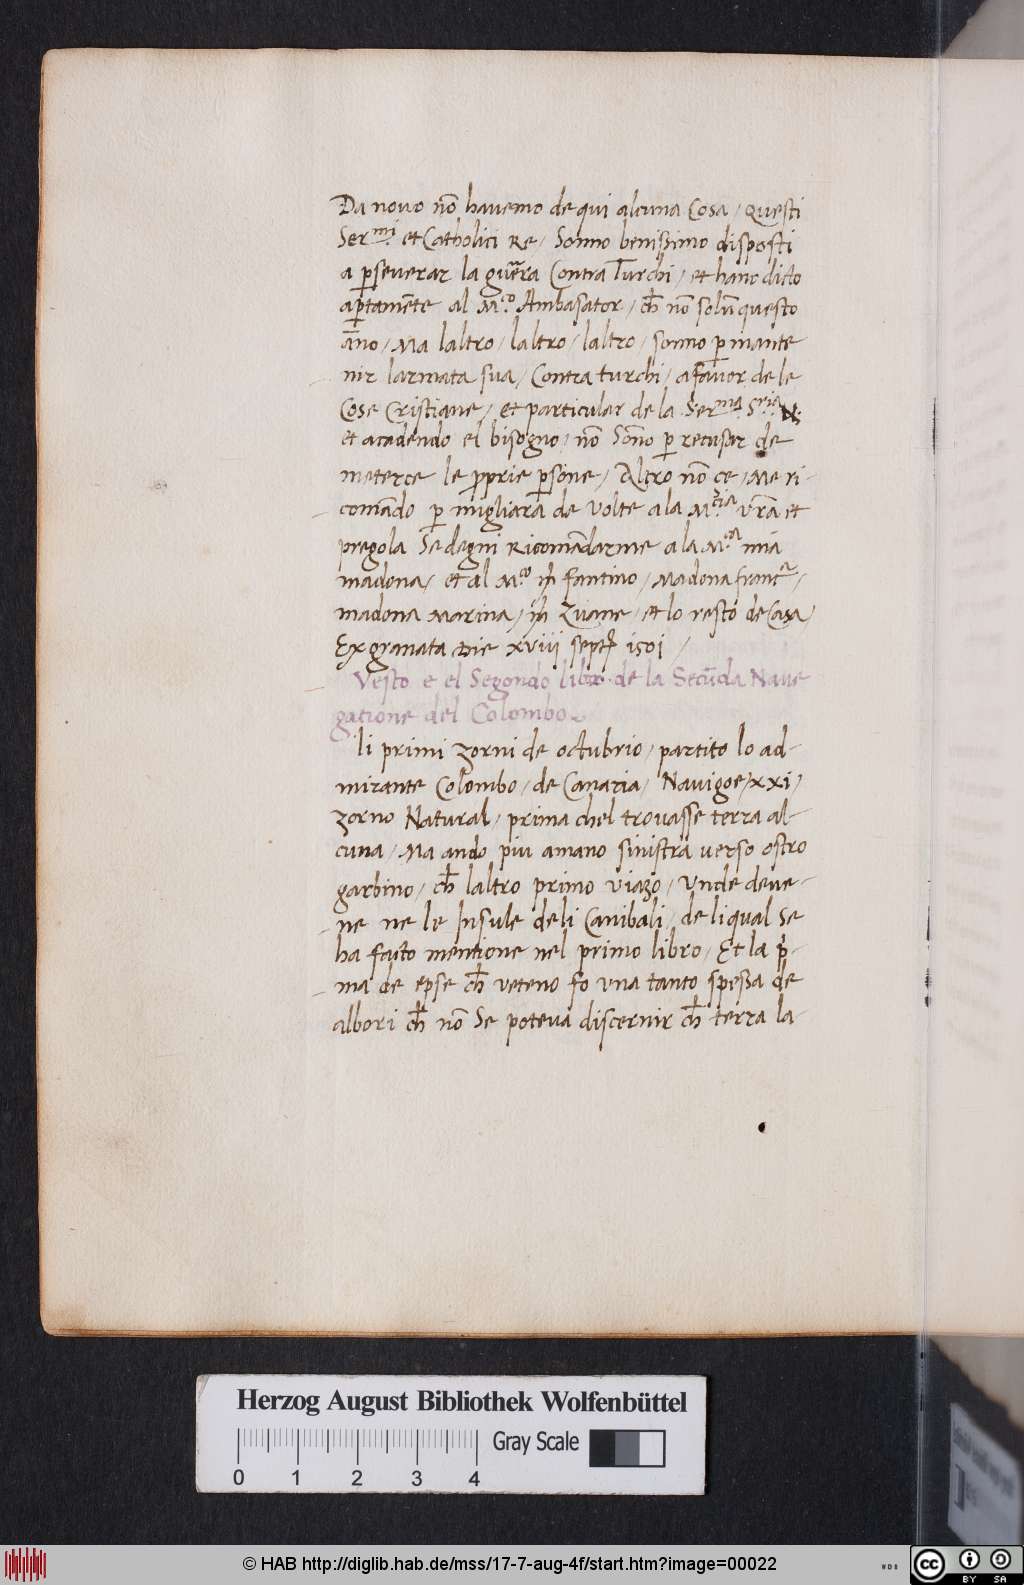 Da novo nõ havemo de qui alcuna Cosa / questi
Ser.mi et Catholici Re / Sonno benissimo disposti
a p̱severar la guẽra Contra Turchi / et hano dicto
ap̱tamẽte al M.co Ambasator / ch̃ nõ solũ questo
ãno / Ma laltro / laltro / laltro / sonno p̱ mante
nir larmata sua / Contra turchi / a favor de le
Cose Cristiane / et particular de la Ser.ma S.ria N:
et acadendo el bisogno / nõ Sõno p̱ recusar de
meterce le p̱prie p̱sone / Altro nõ ce / Me ri-
comãdo p̱ migliara de volte a la M.cia vr̃a et
pregola Se degni Ricomãdarme a la M.ca mia
madona / et al M.co m̃ fantino / Madona franc.a /
madona Marina / m̃ Zuane / et lo resto de Casa /
Ex granata Die xviii septẽ 1501 /
Vesto e el Segondo libro de la Secũda Nave
gatione del Colombo.
li primi zorni de octubrio / partito lo ad-
mirante Colombo / de Canaria / Navigoe / xxi /
zorno Natural / prima chel trovasse terra al-
cuna / Ma ando piu amano sinistra verso ostro
garbino / ch̃ laltro primo viazo / Vnde deve-
ne ne le Insule de li Canibali / de li qual Se
ha facto mentione nel primo libro / Et la p̃-
ma de epse ch̃ veteno fo vna tanto spessa de
albori ch̃ nõ Se poteva discernir ch̃ terra la-
Herzog August Bibliothek Wolfenbüttel
Gray Scale
0 1 2 3 4
© HAB http://diglib.hab.de/mss/17-7-aug-4f/start.htm?image=00022
WDB
CC BY SA